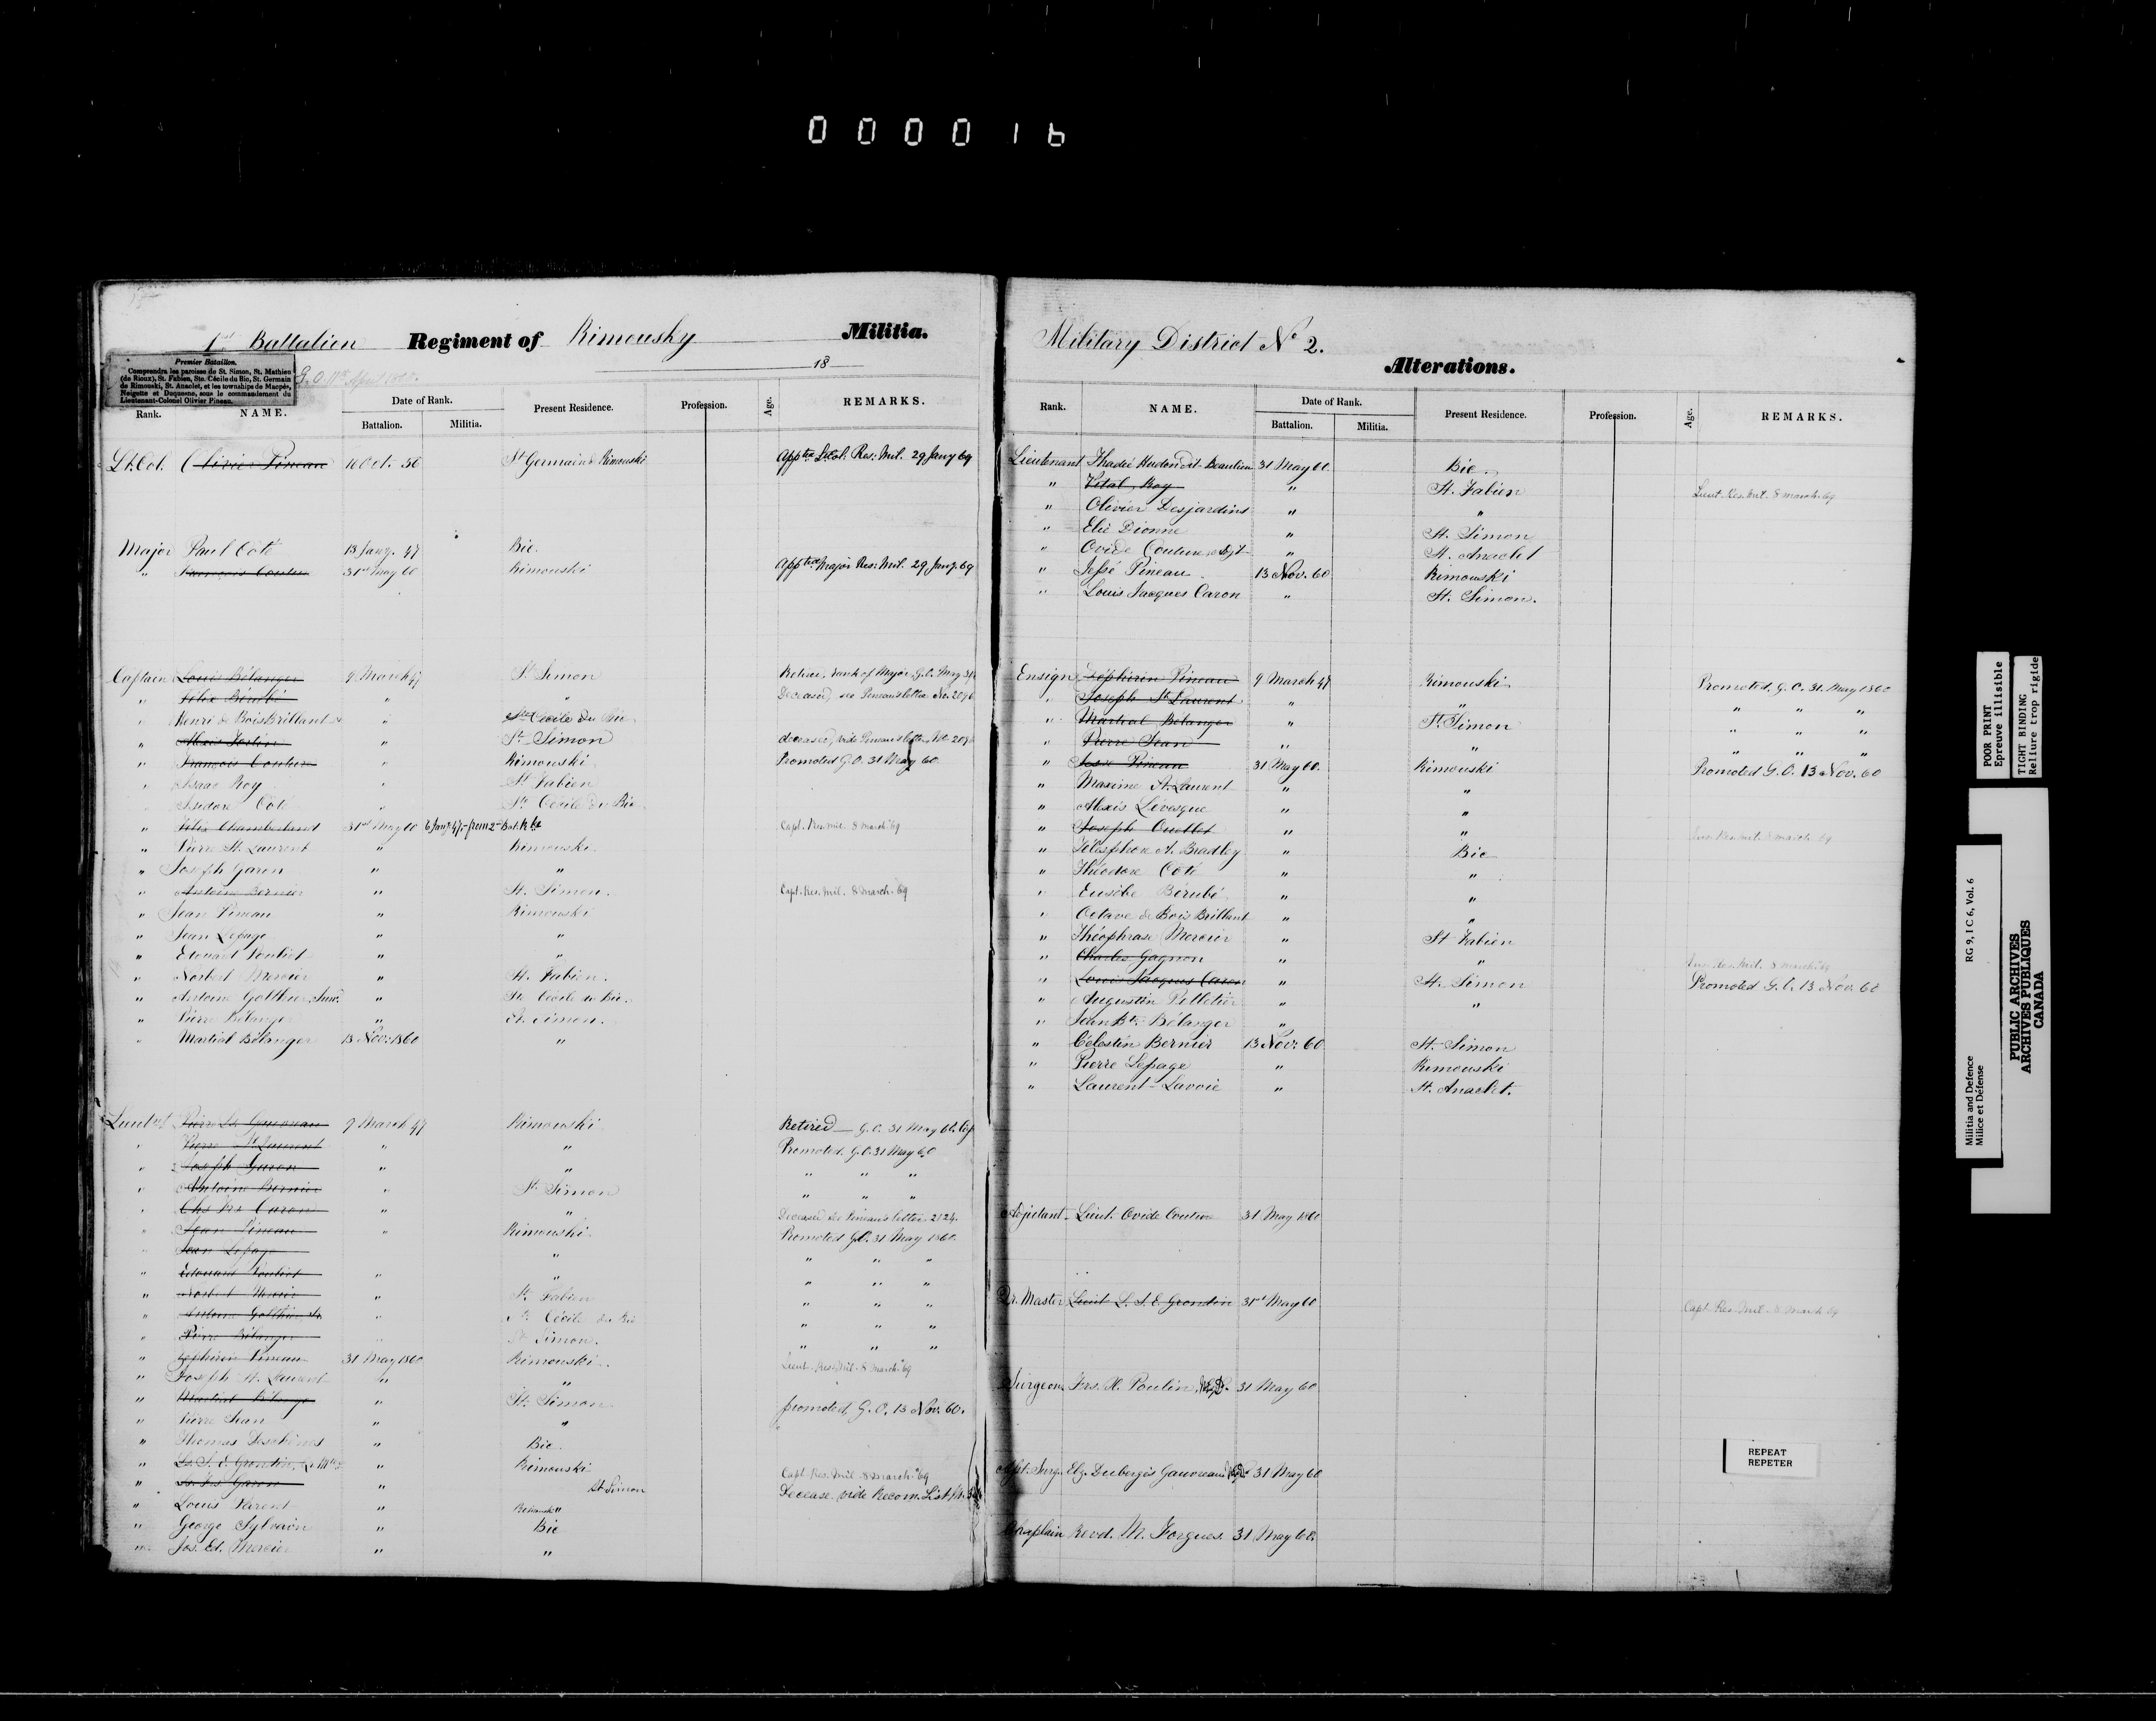 000016
1st Battalion Regiment of Rimousky Militia.
Premier Bataillon.
Comprendra les paroisse de St. Simon, St. Mathieu
(de Rioux), St. Fabien, Ste. Cécile du Bic, St. Germain
de Rimouski, St. Anaclet, et les townships de Macpés,
Neigette et Duquesne, sous le commandement du
Lieutenant-Colonel Olivier Pineau.
G. O. 11th April
18
Rank. NAME. Date of Rank. Present Residence. Profession. Age. REMARKS.
Battalion. Militia.
Lt. Col. Olivier Pineau 16 Oct. 56 St Germain de Rimouski Appted Lt Col. Res: Mil. 29 Jany 69
Major Paul Coté 13 Jany. 47 Bic.
" François Couture 31st May 60 Rimouski Appted Major Res: Mil. 29 Jany. 69
Captain Louis Bélanger 9 March 47 St Simon Retires, rank of Major, G.O. May 31
" Félix Bérubé " " Deceased, see Pineau's letter No. 2096
" Henri de BoisBrillant " Ste Cécile du Bic
" Alexis Fortin " St Simon deceased, vide Pineau's letter, No. 2096
" François Couture " Rimouski Promoted G.O. 31 May 60
" Isaac Roy " St Fabien
" Isidore Coté " Ste Cécile du Bic
" Félix Chamberland 31st May 60 6 Jany. 47. from 2d Bat. Capt. Res. Mil. 8 March. 69
" Pierre St. Laurent " Rimouski
" Joseph Garon " "
" Antoine Bernier " St. Simon. Capt. Res. Mil. 8 March. 69
" Jean Pineau " Rimouski
" Jean Lepage " "
" Edouard Pouliot " "
" Norbert Mercier " St. Fabien.
" Antoine Gotthier, Junr. " Ste Cécile du Bic.
" Pierre Bélanger " St. Simon.
" Martial Bélanger 13 Nov: 1860 "
Lieutnt Pierre Ls. Gauvreau 9 March 47 Rimouski Retired — G.O. 31 May 60. Cap
" Pierre St Laurent " " Promoted. G.O. 31 May 60
" Joseph Garon " " " " "
" Antoine Bernier " St Simon " " "
" Chs Frs Caron " " Deceased see Pineau's letter. 2124.
" Jean Pineau " Rimouski. Promoted G.O. 31 May 1860.
" Jean Lepage " " " "
" Edouard Pouliot " " " " "
" Norbert Mercier St. Fabien " " "
" Antoine Gotthier, Jr. " Ste Cécile du Bic " " "
" Pierre Bélanger " St Simon. " " "
" Zéphirin Pineau 31 May 1860 Rimouski. Lieut. Res. Mil. 8 March. 69
" Joseph St. Laurent " "
" Martial Bélanger " St. Simon promoted, G.O. 13 Nov. 60.
" Pierre Jean " "
" Thomas Deschênes " Bic.
" Ls. S. E. Grondin, Qr. Mtr. " Rimouski Capt. Res. Mil. 8 March. 69
" Ls. Frs Garon " St Simon Decease vide Recom. List
" Louis Parent " Rimouski "
" George Sylvain " Bic
" Jos. Ed. Mercier " "
Military District No 2.
Alterations.
Rank. NAME. Date of Rank. Present Residence. Profession. Age. REMARKS.
Battalion. Militia.
Lieutenant Thadé Hudon dit Beaulieu 31 May 60 Bic
" Vital Roy " St. Fabien Lieut. Res. Mil. 8 March. 69
" Olivier Desjardins " "
" Elié Dionne " St. Simon
" Ovide Couture, Adjt " St. Anaclet
" Jessé Pineau 13 Nov. 60 Rimouski
" Louis Jacques Caron " St. Simon.
Ensign Zéphirin Pineau 9 March 47 Rimouski Promoted, G.O. 31. May 1860
" Joseph St Laurent " " " " "
" Martial Bélanger " St. Simon " " "
" Pierre Jean " " " " "
" Jessé Pineau 31 May 60. Rimouski Promoted G.O. 13 Nov. 60
" Maxime St. Laurent " "
" Alexis Lévesque " "
" Joseph Ouellet " " Res. Mil. 8 March. 69
" Télesphore A. Bradley " Bic
" Théodore Côté " "
" Eusèbe Bérubé " "
" Octave de Bois Brillant " "
" Théophrase Mercier " St Fabien
" Charles Gagnon " " Res. Mil. 8 March. 69
" Louis Jacques Caron St. Simon Promoted G.O. 13 Nov. 60
" Augustin Pelletier " "
" Jean Bte. Bélanger "
" Célestin Bernier 13 Nov: 60 St. Simon
" Pierre Lepage " Rimouski
" Laurent Lavoie " St. Anaclet.
Adjutant Lieut. Ovide Couture 31 May 1860
Qr. Master Lieut. L. S. E. Grondin 31st May 60 Capt. Res. Mil. 8 March 69
Surgeon Frs. X. Poulin, M.D. 31 May 60
Asst. Surg. Elz. Dubergès Gauvreau 31 May 60
Chaplain Revd. M. Forgues. 31 May 60.
POOR PRINT
Epreuve illisible
TIGHT BINDING
Reliure trop rigide
Militia and Defence
Milice et Défense
RG 9, I C 6, Vol. 6
PUBLIC ARCHIVES
ARCHIVES PUBLIQUES
CANADA
REPEAT
REPETER